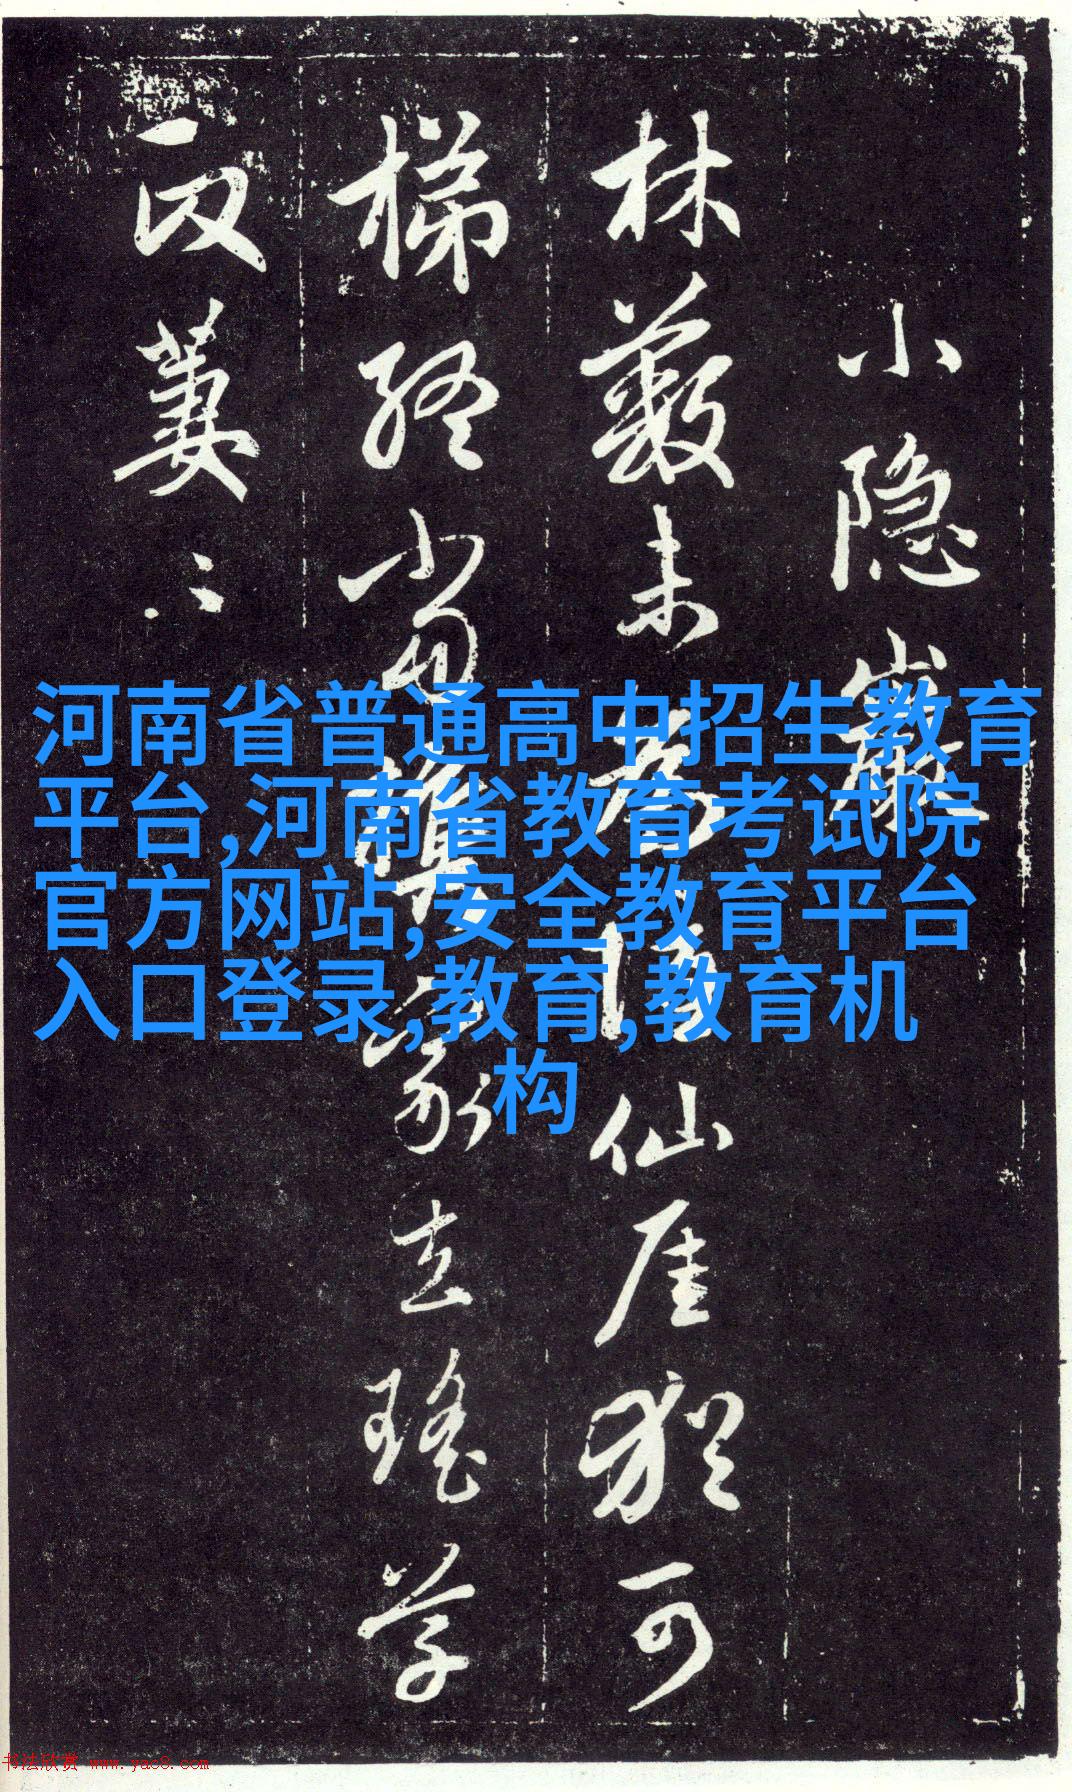 河南省普通高中招生教育
平台,河南省教育考试院
官方网站,安全教育平台
入口登录,教育,教育机
构
小隐巖
林薮未為隐仙崖猶可
梯终當携家去瑶草
萋〻
书法欣赏 www.yac8.com